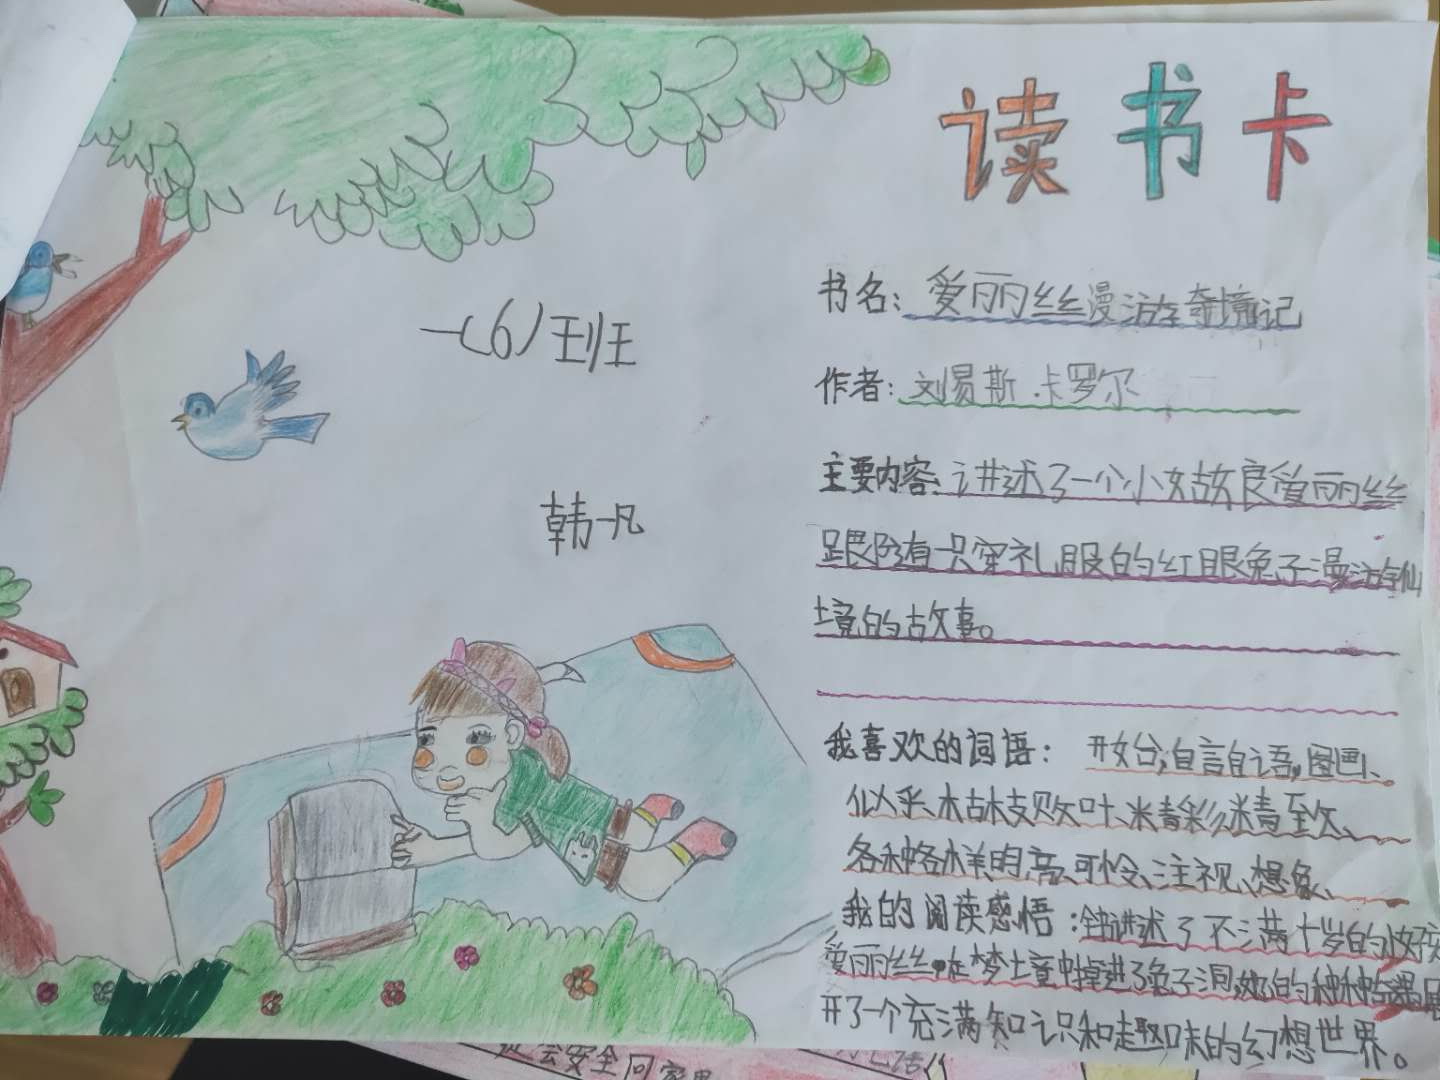 读书卡
一(6)班
韩一凡
书名:爱丽丝漫游奇境记
作者:刘易斯.卡罗尔
主要内容:讲述了一个小姑娘爱丽丝
跟随一只穿礼服的红眼兔子漫游仙
境的故事。
我喜欢的词语:开始,自言自语,图画、
似乎、枯枝败叶、精彩、精致、
各种各样的、亮、可怜、注视、想象、
我的阅读感悟:讲述了不满十岁的女孩
爱丽丝在梦境中掉进了兔子洞,她的种种
开了一个充满知识和趣味的幻想世界。
安全回家